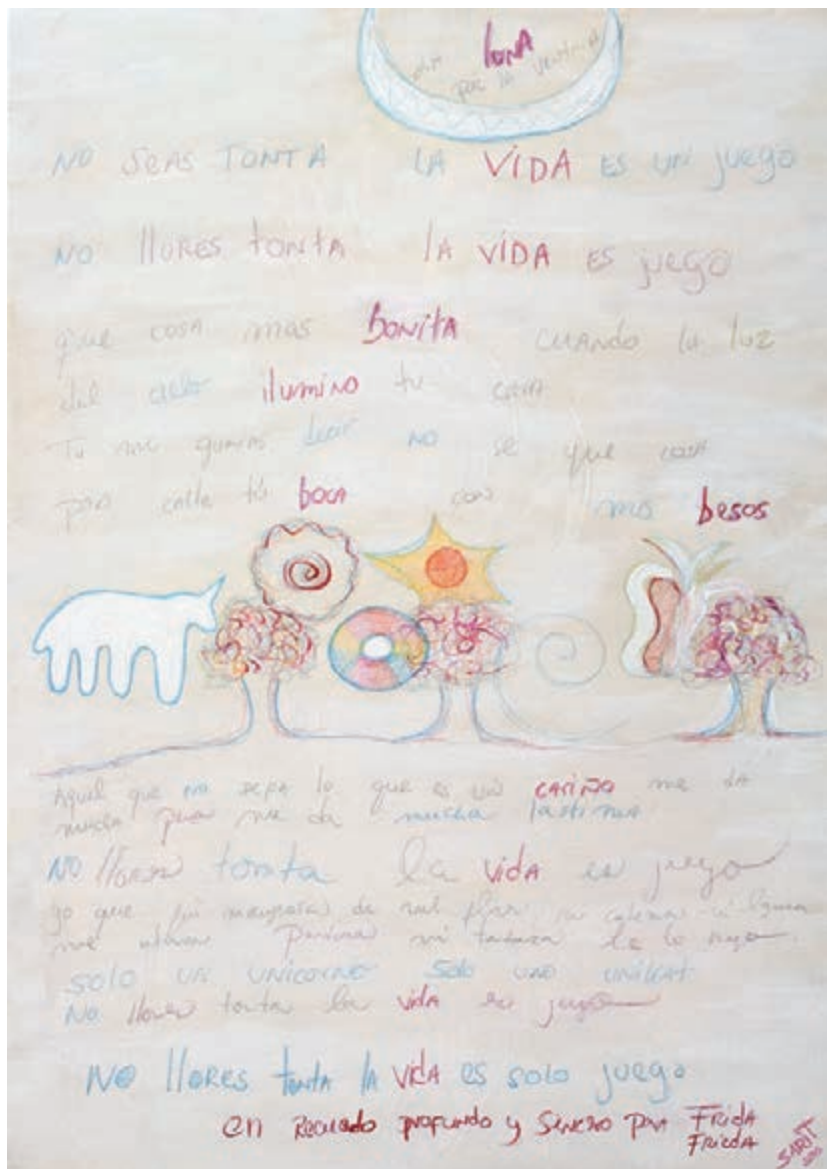 luna
por la ventana
NO SEAS TONTA LA VIDA ES UN JUEGO
NO llORES tonta lA VIDA ES juego
que cosa mas bonita CUANDO la luz
del cielo ilumino tu cara
Tu me querias decir NO se que cosa
pero calle tu boca con mis besos
Aquel que no sepa lo que es un cariño me da
mucha pena me da mucha lastima
NO llores tonta la vida es juego
yo que fui mariposa de mil flores
me
solo UN UNICORNIO solo UNO
No llores tonta la vida es juego
NO llORES tonta lA VIDA ES SOLO juego
en Recuerdo profundo y Sincero para Frida
Frieda
SARIT